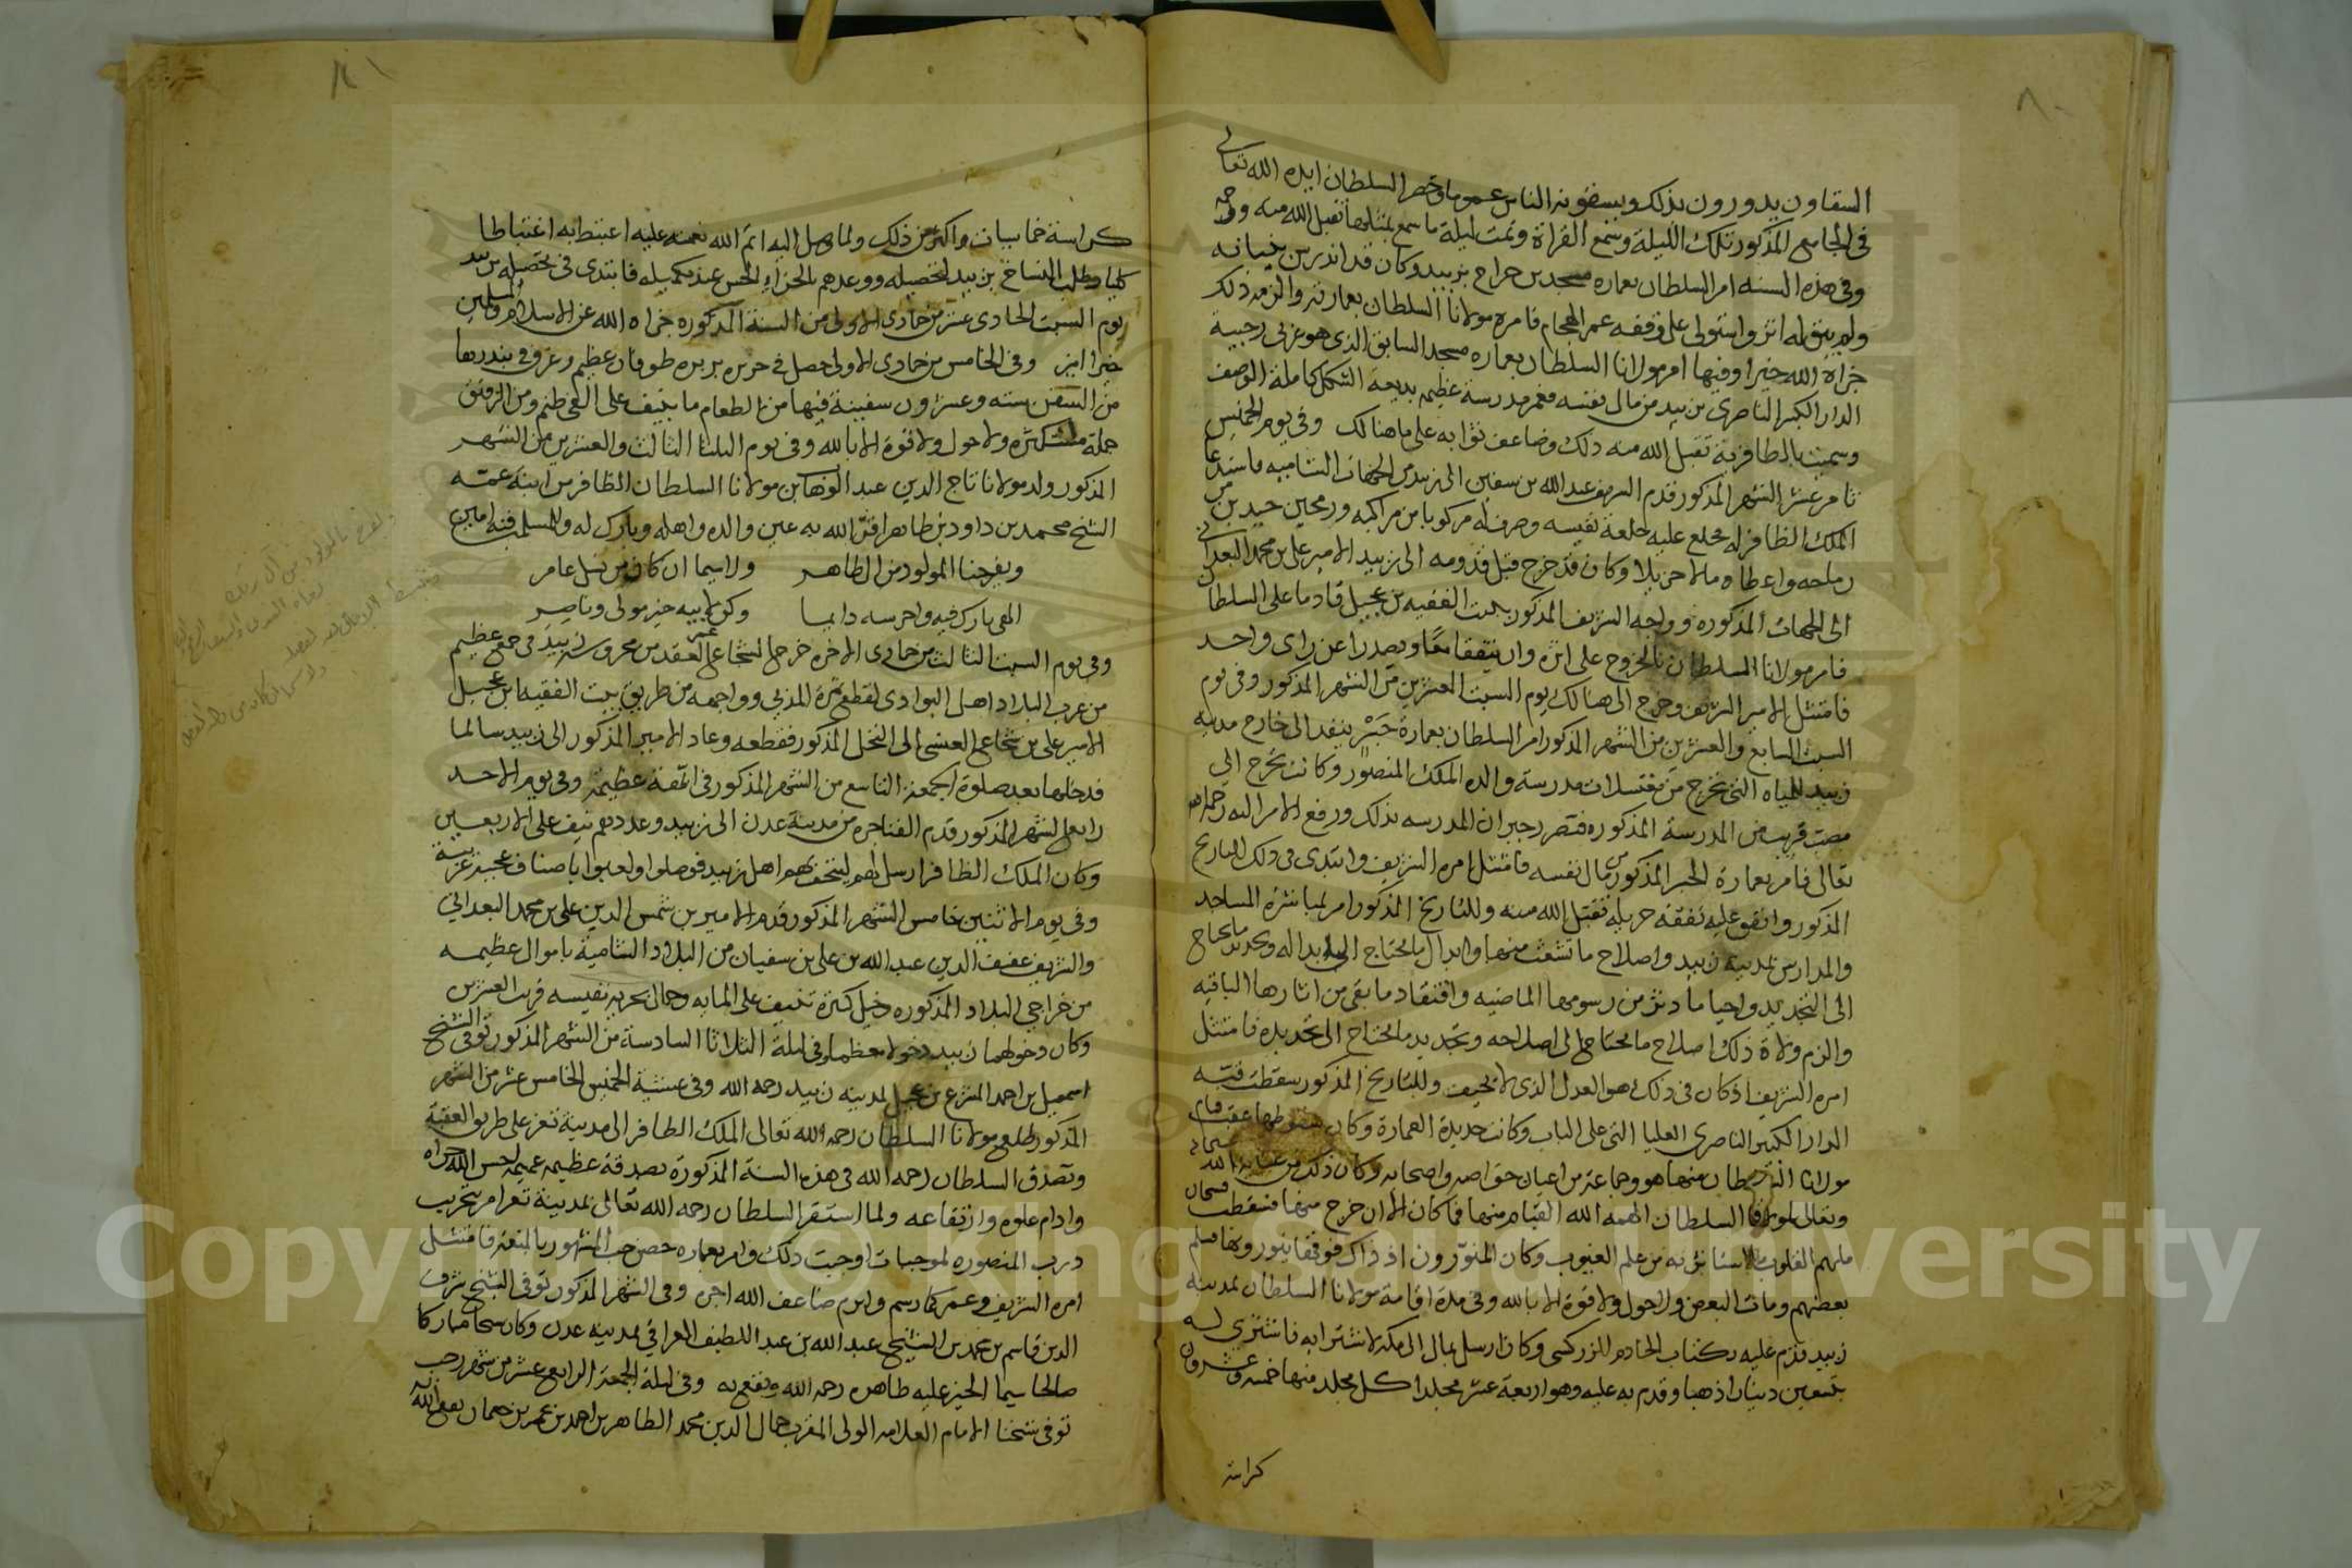 ٨٠
السقاون يدورون بذلك ويسقون الناس عموما وحضر السلطان ايده الله تعالى
في الجامع المذكور تلك الليلة وسمع القراة وتمت ليلة ما سمع بمثلها تقبل الله منه
وفي هذه السنه امر السلطان بعماره مسجد بن حراج بزبيد وكان قد اندرس بنيانه
ولم يبق له اثر واستولى على وقفه عمر الهجام فامره مولانا السلطان بعمارته والزمه ذلك
جزاه الله خيرا وفيها امر مولانا السلطان بعماره مسجد السابق الذي هو غربي رحبة
الدار الكبير الناصري بزبيد من مال نفسه فعمر مدرسة عظيمه بديعة الشكل كاملة الوصف
وسميت بالظافرية تقبل الله منه ذلك وضاعف ثوابه على ما هنالك وفي يوم الخميس
ثامن عشر الشهر المذكور قدم الشريف عبد الله بن سفين الى زبيد من الجهات الشاميه فاستدعا
الملك الظافر له فخلع عليه خلعة نفيسه وصرف له مركوبا من مراكبه ورمحين جيدين من
رماحه واعطاه مالا جزيلا وكان قد خرج قبل قدومه الى زبيد الامير علي بن محمد البعداني
الى الجهات المذكوره فواجه الشريف المذكور ببيت الفقيه بن عجيل قادما على السلطان
فامر مولانا السلطان بالخروج على اثره وان يتفقا معا ويصدرا عن راى واحد
فامتثل الامير الشريف وخرج الى هنالك يوم السبت العشرين من الشهر المذكور وفي يوم
السبت السابع والعشرين من الشهر المذكور امر السلطان بعمارة جبر ينفد الى خارج مدينه
زبيد للمياه التي تخرج من مغتسلات مدرسة والده الملك المنصور وكانت تخرج الى
مصب قريب من المدرسة المذكوره فتضرر جيران المدرسه بذلك ورفع الامر اليه رحمه الله
تعالى فامر بعمارة الجبر المذكور من مال نفسه فامتثل امره الشريف وابتدى في ذلك التاريخ
المذكور وانفق عليه نفقة جزيله تقبل الله منه وللتاريخ المذكور امر لمباشرة المساجد
والمدارس بمدينة زبيد واصلاح ما تشعث منها وابدال ما يحتاج الى ابداله وتجديد ما يحتاج
الى التجديد واحيا ما دثر من رسومها الماضيه وافتقاد ما بقي من اثارها الباقيه
والزم ولاة ذلك اصلاح ما يحتاج الى اصلاحه وتجديد ما يحتاج الى تجديده فامتثل
امره الشريف اذ كان في ذلك هو العدل الذي لا يحيف وللتاريخ المذكور سقطت قبته
الدار الكبير الناصرى العليا التي على الباب وكانت جديدة العمارة وكان سقوطها عقب قيام
مولانا السلطان منها هو وجماعة من اعيان خواصه واصحابه وكان ذلك من عناية الله سبحانه
وتعالى لمولانا السلطان الهمه الله القيام منها فما كان الا ان خرج منها فسقطت فسبحان
ملهم القلوب ما استاثر به من علم الغيوب وكان المنورون اذ ذاك فوقها ينورونها فسلم
بعضهم ومات البعض ولا حول ولا قوة الا بالله وفي مدة اقامة مولانا السلطان بمدينة
زبيد قدم عليه بكتاب الخادم للزركشي وكان ارسل بمال الى مكه لاشترابه فاشترى له
بتسعين دينارا ذهبا وقدم به عليه وهو اربعة عشر مجلدا كل مجلد منها خمسه وعشرون
كراسة
٨١
كراسة خماسيات واكثر من ذلك ولما وصل اليه اتم الله نعمته عليه اغتبط به اغتباطا
كليا وطلب النساخ بزبيد لتحصيله ووعدهم بالجزاء الحسن عند تكميله فابتدى في تحصيله بزبيد
يوم السبت الحادى عشر من جمادى الاولى من السنة المذكوره جزاه الله عن الاسلام والمسلمين
خيرا امين وفي الخامس من جمادى الاولى حصل في جزيره بربره طوفان عظيم وغرق في بندرها
من السفن سته وعشرون سفينة فيها من الطعام ما ينيف على الفي طنم ومن الرقيق
جملة مستكثره ولا حول ولا قوة الا بالله وفي يوم الثلثا الثالث والعشرين من الشهر
المذكور ولد مولانا تاج الدين عبد الوهاب بن مولانا السلطان الظافر من ابنة عمته
الشيخ محمد بن داود بن طاهر اقر الله به عين والده واهله وبارك له وللمسلمين فيه امين
ويفرحنا المولود من ال طاهر ولا سيما ان كان من نسل عامر
الهي بارك فيه واحرسه دايما وكن لابيه خير مولى وناصر
وفي يوم السبت الثالث من جمادى الاخره خرج الشجاع عمر العقد من محروس زبيد في جمع عظيم
من عرب البلاد اهل البوادى لقطع ثمرة المدبي وواجهه من طريق بيت الفقيه ابن عجيل
الامير علي بن شجاع العنسي الى النخل المذكور فقطعه وعاد الامير المذكور الى زبيد سالما
فدخلها بعد صلوة الجمعة التاسع من الشهر المذكور في ابهة عظيمة وفي يوم الاحد
رابع الشهر المذكور قدم الفناجره من مدينة عدن الى زبيد وعددهم نيف على الاربعين
وكان الملك الظافر ارسل لهم ليتحف بهم اهل زبيد فوصلوا ولعبوا باصناف عجيبة غريبة
وفي يوم الاثنين خامس الشهر المذكور قدم الامير بن شمس الدين علي بن محمد البعداني
والشريف عفيف الدين عبد الله بن علي بن سفيان من البلاد الشامية باموال عظيمه
من خراجي البلاد المذكوره وخيل كثيرة تنيف على المايه وجمال بحريه نفيسه قريب العشرين
وكان دخولهما زبيد دخولا معظما وفي ليلة الثلاثا السادسة من الشهر المذكور توفى الشيخ
اسمعيل بن احمد المشرع بن عجيل بمدينه زبيد رحمه الله وفي عشية الخميس الخامس عشر من الشهر
المذكور طلع مولانا السلطان رحمه الله تعالى الملك الظافر الى مدينة تعز على طريق العقبة
وتصدق السلطان رحمه الله في هذه السنة المذكورة بصدقة عظيمه عميمه احسن الله جزاه
وادام علوه وارتقاعه ولما استقر السلطان رحمه الله تعالى بمدينة تعز امر بتخريب
درب المنصوره لموجبات اوجبت ذلك وامر بعماره حصن حب المشهور بالمنعة فامتثل
امره الشريف وعمر كما رسم وابرم ضاعف الله اجره وفي الشهر المذكور توفى الشيخ شرف
الدين قاسم بن محمد بن الشيخ عبد الله بن عبد اللطيف العراقي بمدينه عدن وكان شيخا مباركا
صالحا سيما الخير عليه ظاهره رحمه الله ونفع به وفي ليلة الجمعة الرابع عشر من شهر رجب
توفى شيخنا الامام العلامه الولي المقرب جمال الدين محمد الطاهر بن احمد بن عمر بن جعمان نفع الله به
Copyright © King Saud University